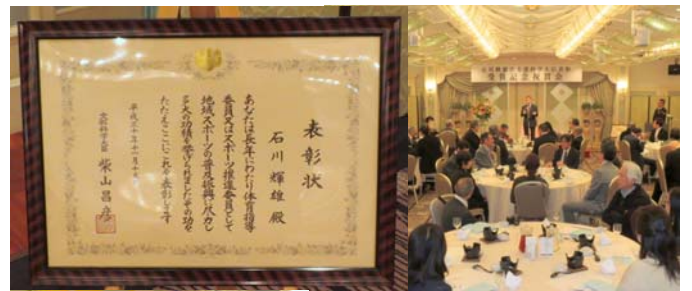 表彰状
石川輝雄殿
あなたは長年にわたり体育指導
委員又はスポーツ推進委員として
地域スポーツの普及振興に尽力し
多大の功績を挙げられましたその功を
たたえここにこれを表彰します
平成三十年十一月
文部科学大臣 柴山昌彦
受賞記念祝賀会